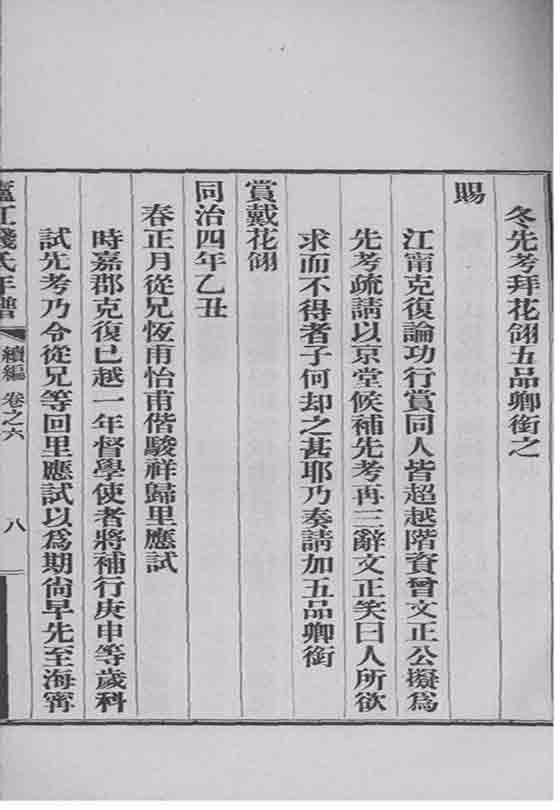 冬先考拜花翎五品卿銜之
賜
江甯克復論功行賞同人皆超越階資曾文正公擬爲
先考疏請以京堂候補先考再三辭文正笑曰人所欲
求而不得者子何却之甚耶乃奏請加五品卿銜
賞戴花翎
同治四年乙丑
春正月從兄恆甫怡甫偕駿祥歸里應試
時嘉郡克復已越一年督學使者將補行庚申等歲科
試先考乃令從兄等回里應試以爲期尙早先至海甯
廬江錢氏年譜 續編 卷之六 八